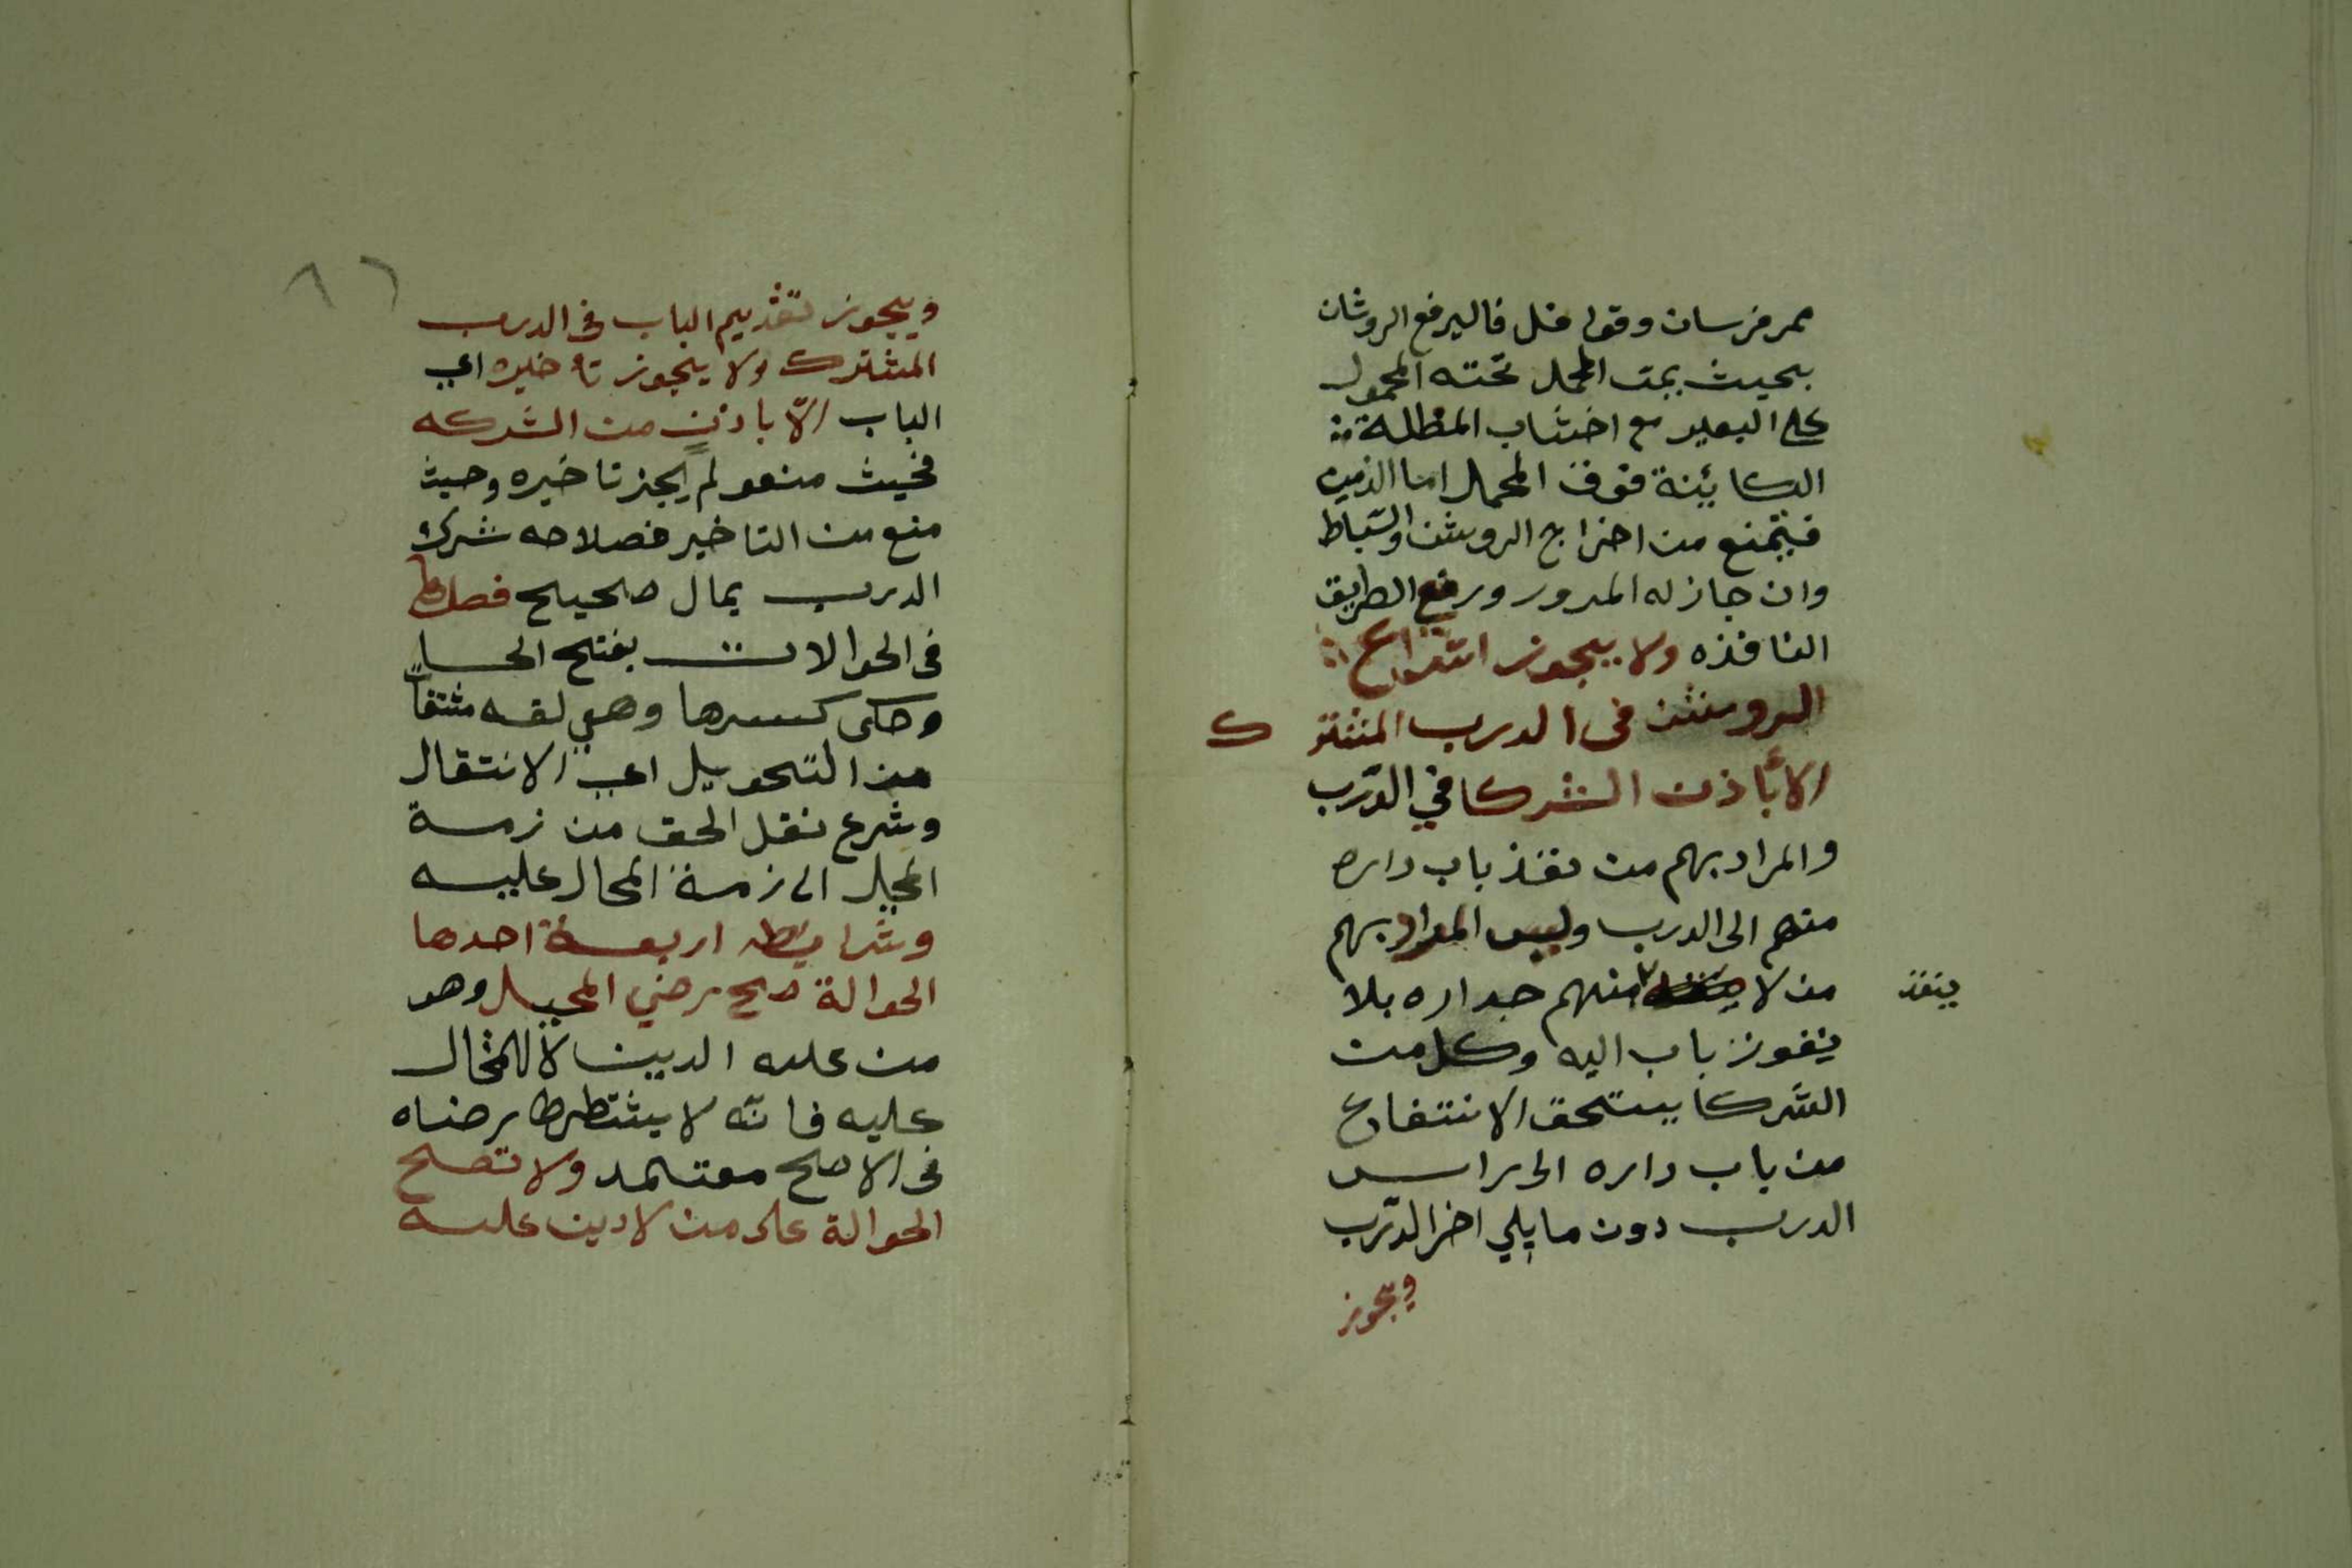 ممر فرسان وقوافل فاليرفع الروشان
بحيث يمت المحمل تحته المحمول
على البعير مع اخشاب المظلة
الكايئنة فوق المحمل اما الذمي
فيمنع من اخراج الروشن والسباط
وان جاز له المرور ورفع الطريق
النافذه ولا يجوز اشراع
الروشن فى الدرب المشترك
الا باذن الشركا في الدرب
والمراد بهم من نفذ باب داره
منهم الى الدرب وليس المراد بهم
من لا ينفذ منهم جداره بلا
نفوز باب اليه وكل من
الشركا يستحق الانتفاع
من باب داره الى راس
الدرب دون ما يلي اخر الدرب
ويجوز
٨٦
ويجوز تقديم الباب فى الدرب
المشترك ولا يجوز تاخيره اي
الباب الا باذن من الشركه
فحيث منعو لم يجز تاخيره وحيث
منع من التاخير فصلاحه شرك
الدرب بمال صحيح فصل
فى الحوالات بفتح الحا
وحكى كسرها وهي لغه
من التحويل اي الانتقال
وشرع نقل الحق من زمة
المحيل الى زمة المحال عليه
وشرايطه اربعة احدها
الحوالة صح رضي المحيل وهو
من عليه الدين لا المحال
عليه فانه لا يشتطرط رضاه
فى الاصح معتمد ولا تصح
الحوالة على من لا دين عليه